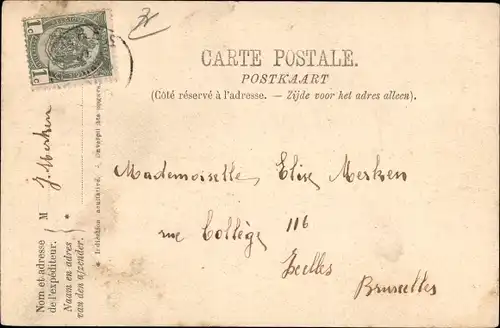 CARTE POSTALE.
POSTKAART
(Côté réservé à l'adresse. — Zijde voor het adres alleen).
Mademoiselle Elise Merken
rue Collège 116
Ixelles
Bruxelles
Nom et adresse
de l'expéditeur.
Naam en adres
van den afzender.
M J. Merken
* Indication facultative. —
1c 1c